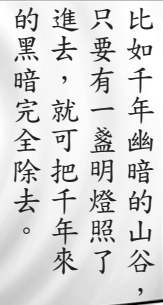 比如千年幽暗的山谷，
只要有一盞明燈照了
進去，就可把千年來
的黑暗完全除去。